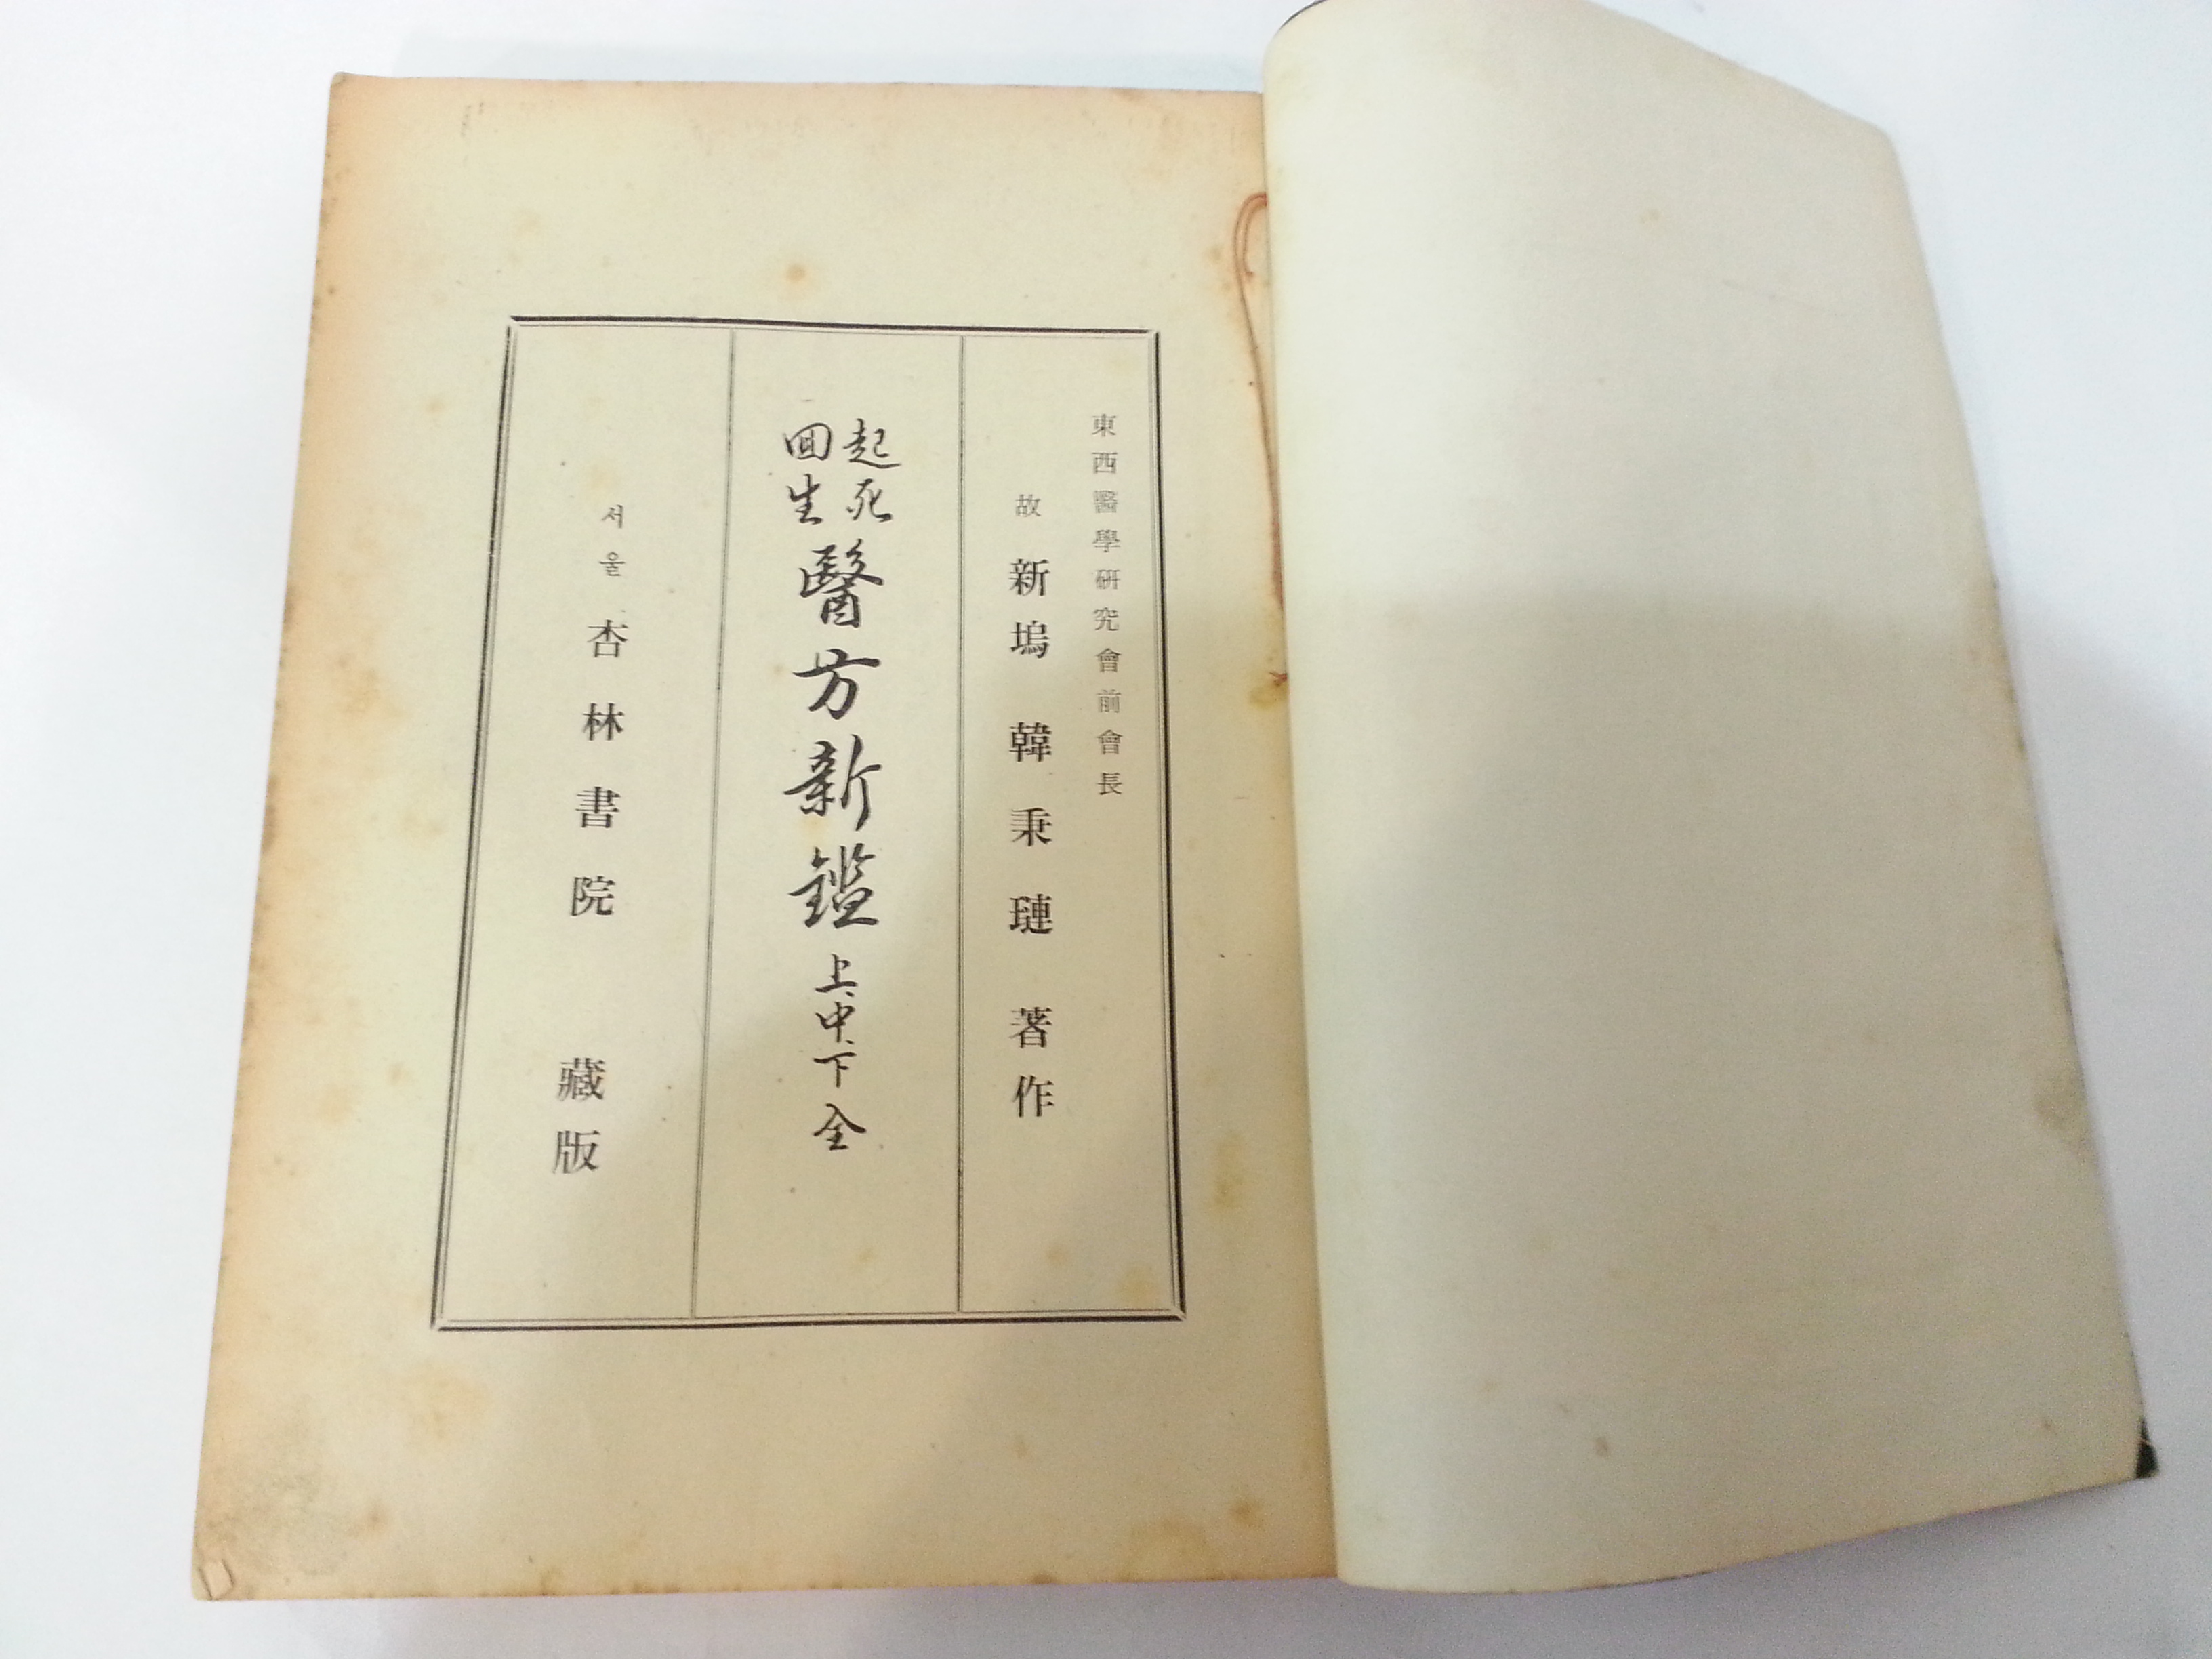 東西醫學硏究會前會長
故 新塢 韓秉璉 著作
起死
回生
醫方新鑑 上、中、下 全
서울 杏林書院 藏版